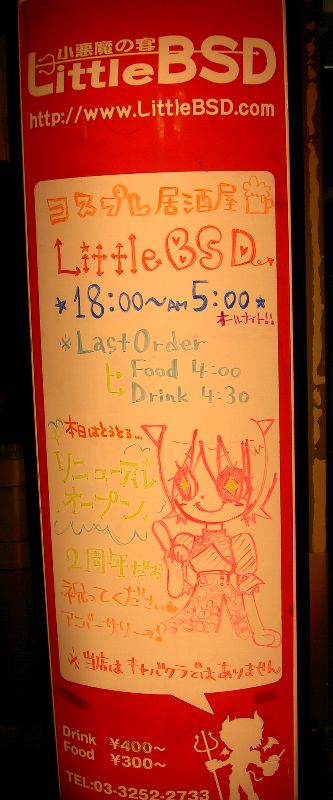 小悪魔の宴
LittleBSD
http://www.LittleBSD.com
コスプレ居酒屋
LittleBSD
*18:00~AM5:00*
オールナイト!!
*Last Order
Food 4:00
Drink 4:30
本日はとうとう...
リニューアル
オープン
2周年だお
祝ってください
アニバーサリーっ!
※当店はキャバクラではありません
Drink ¥400~
Food ¥300~
TEL:03-3252-2733